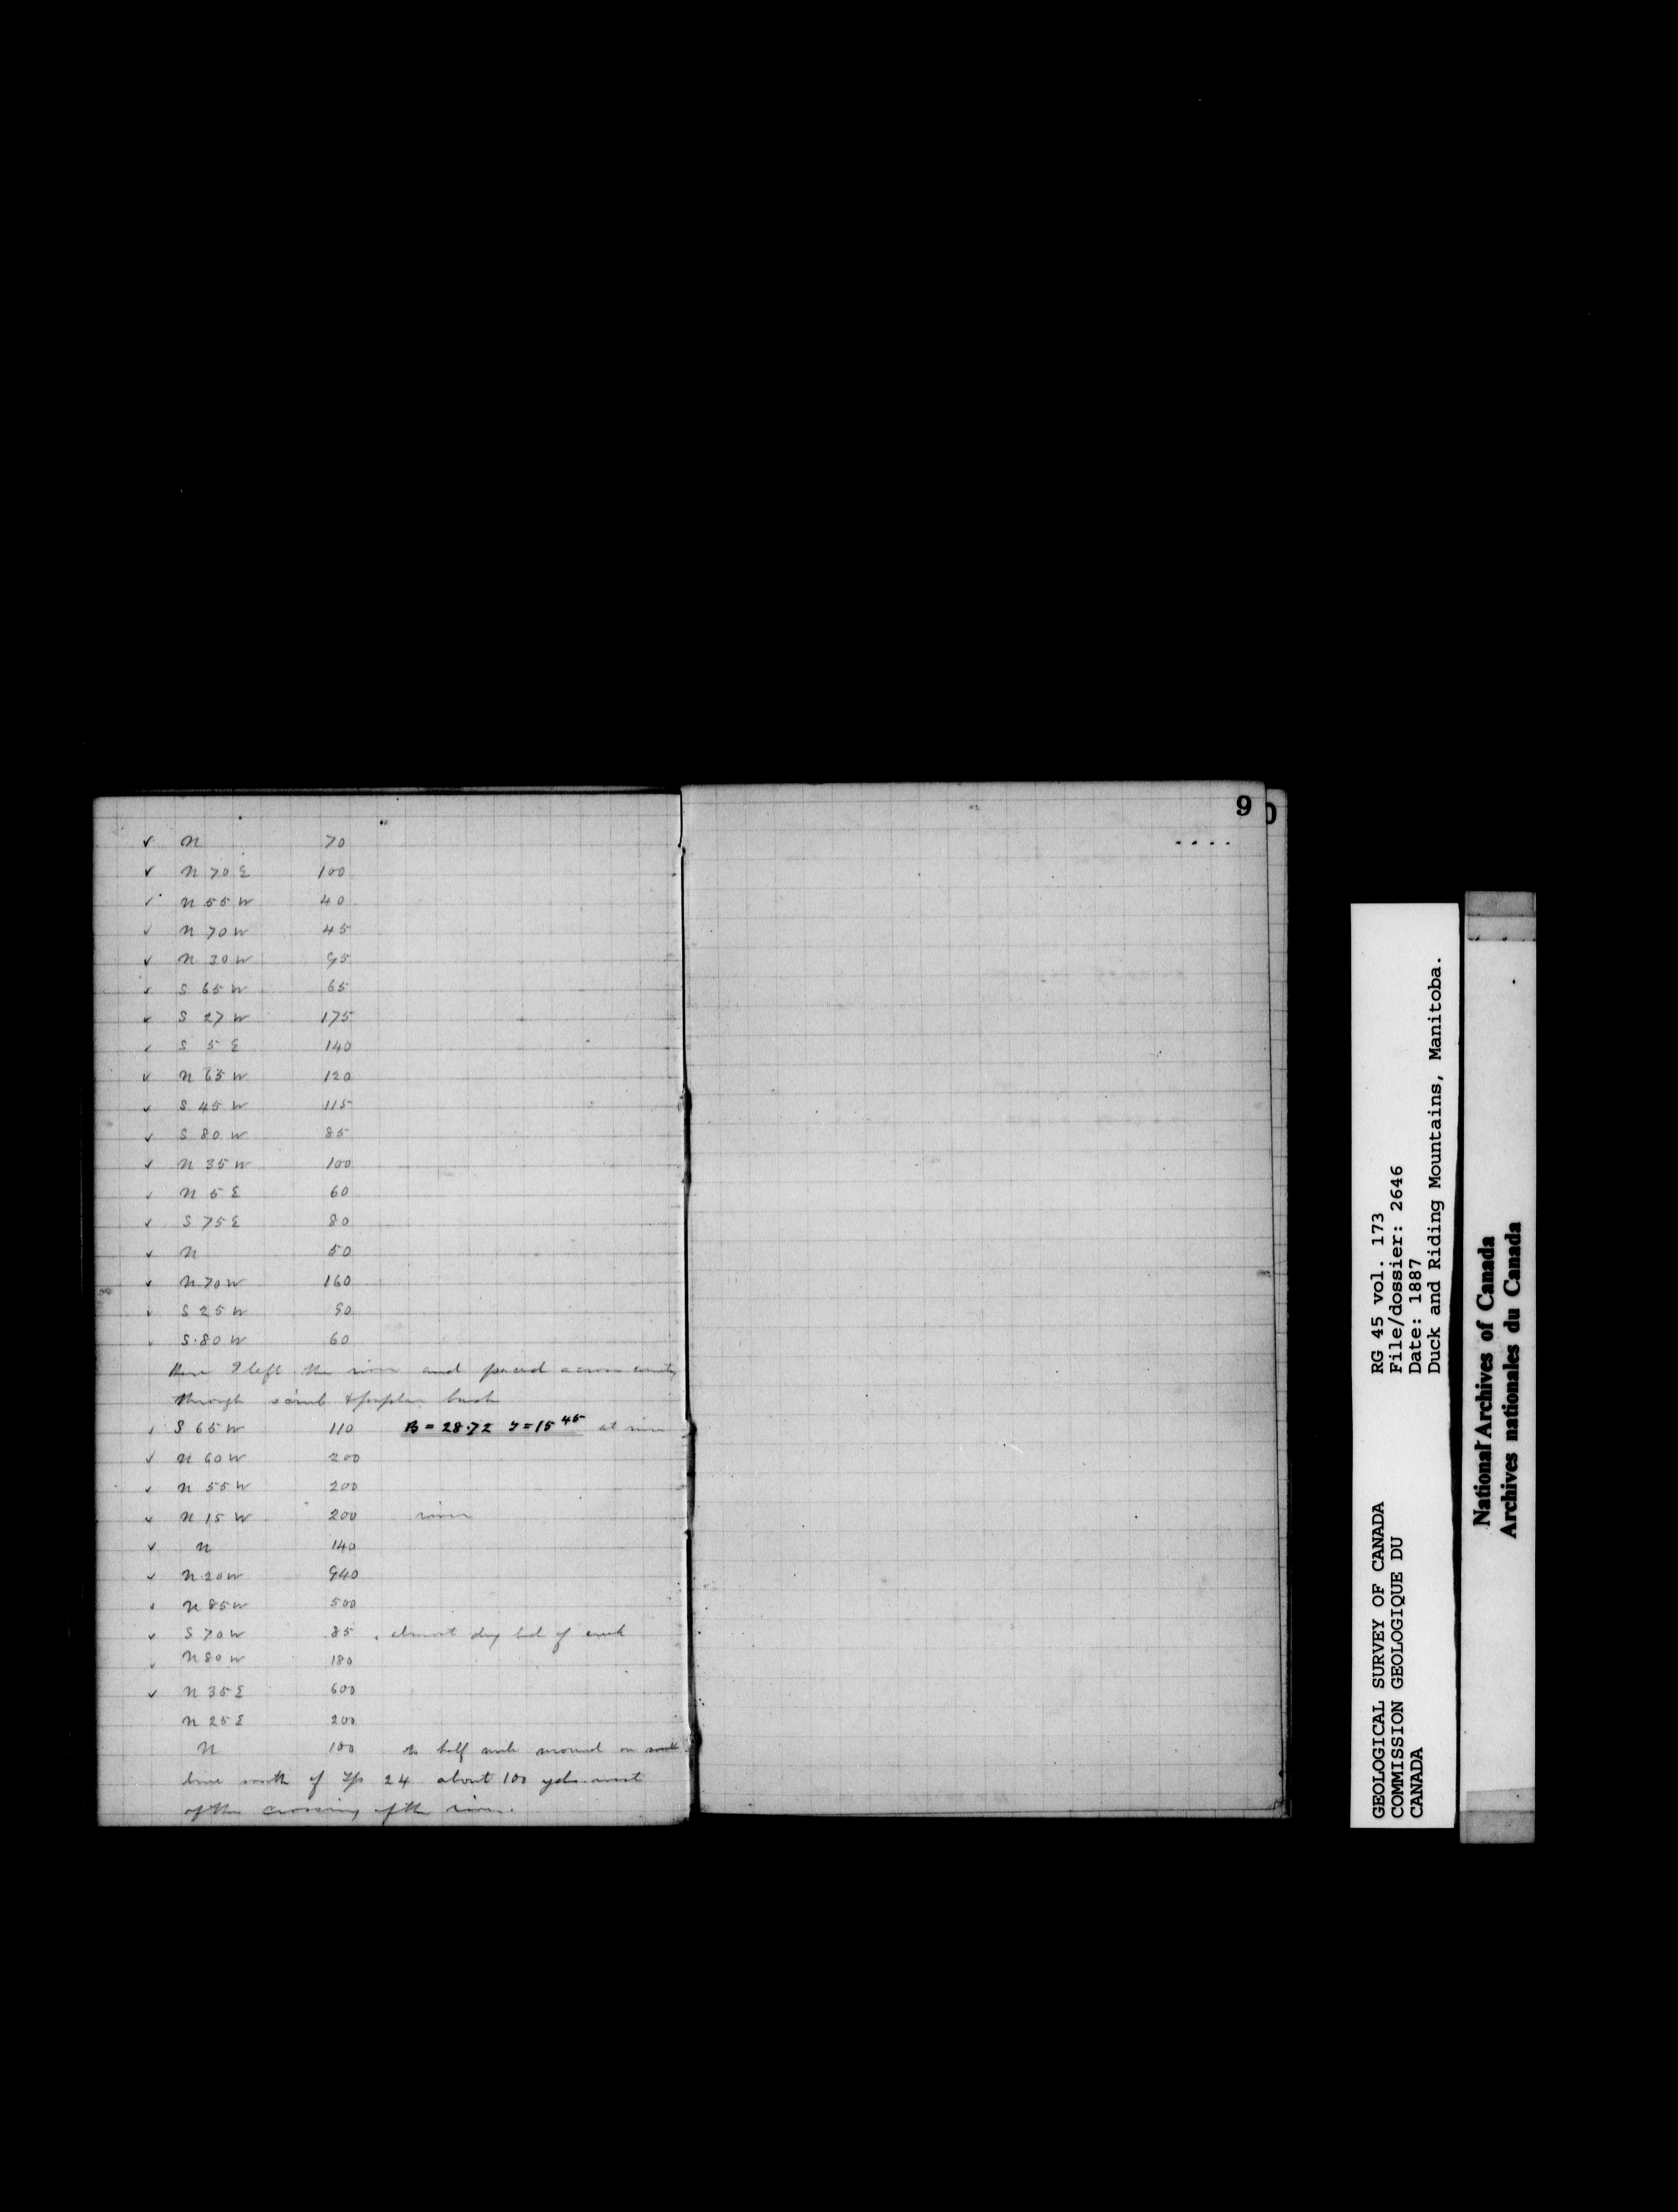 ✓ N 70
✓ N 70 E 100
✓ N 55 W 40
✓ N 70 W 45
✓ N 30 W 95
✓ S 65 W 65
✓ S 27 W 175
✓ S 5 E 140
✓ N 65 W 120
✓ S 45 W 115
✓ S 80 W 85
✓ N 35 W 100
✓ N 5 E 60
✓ S 75 E 80
✓ N 50
✓ N 70 W 160
✓ S 25 W 90
✓ S 80 W 60
Here I left the river and paced across country
through scrub & poplar bush
✓ S 65 W 110 B = 28.72 T = 15 45 at river
✓ N 60 W 200
✓ N 55 W 200
✓ N 15 W 200 river
✓ N 140
✓ N 20 W 940
✓ N 85 W 500
✓ S 70 W 85 almost dry bed of creek
✓ N 80 W 180
✓ N 35 E 600
N 25 E 200
N 100 to half mile mound on
line north of Tp 24 about 100 yds west
of the crossing of the river.
9
GEOLOGICAL SURVEY OF CANADA RG 45 vol. 173
COMMISSION GEOLOGIQUE DU File/dossier: 2646
CANADA Date: 1887
Duck and Riding Mountains, Manitoba.
National Archives of Canada
Archives nationales du Canada